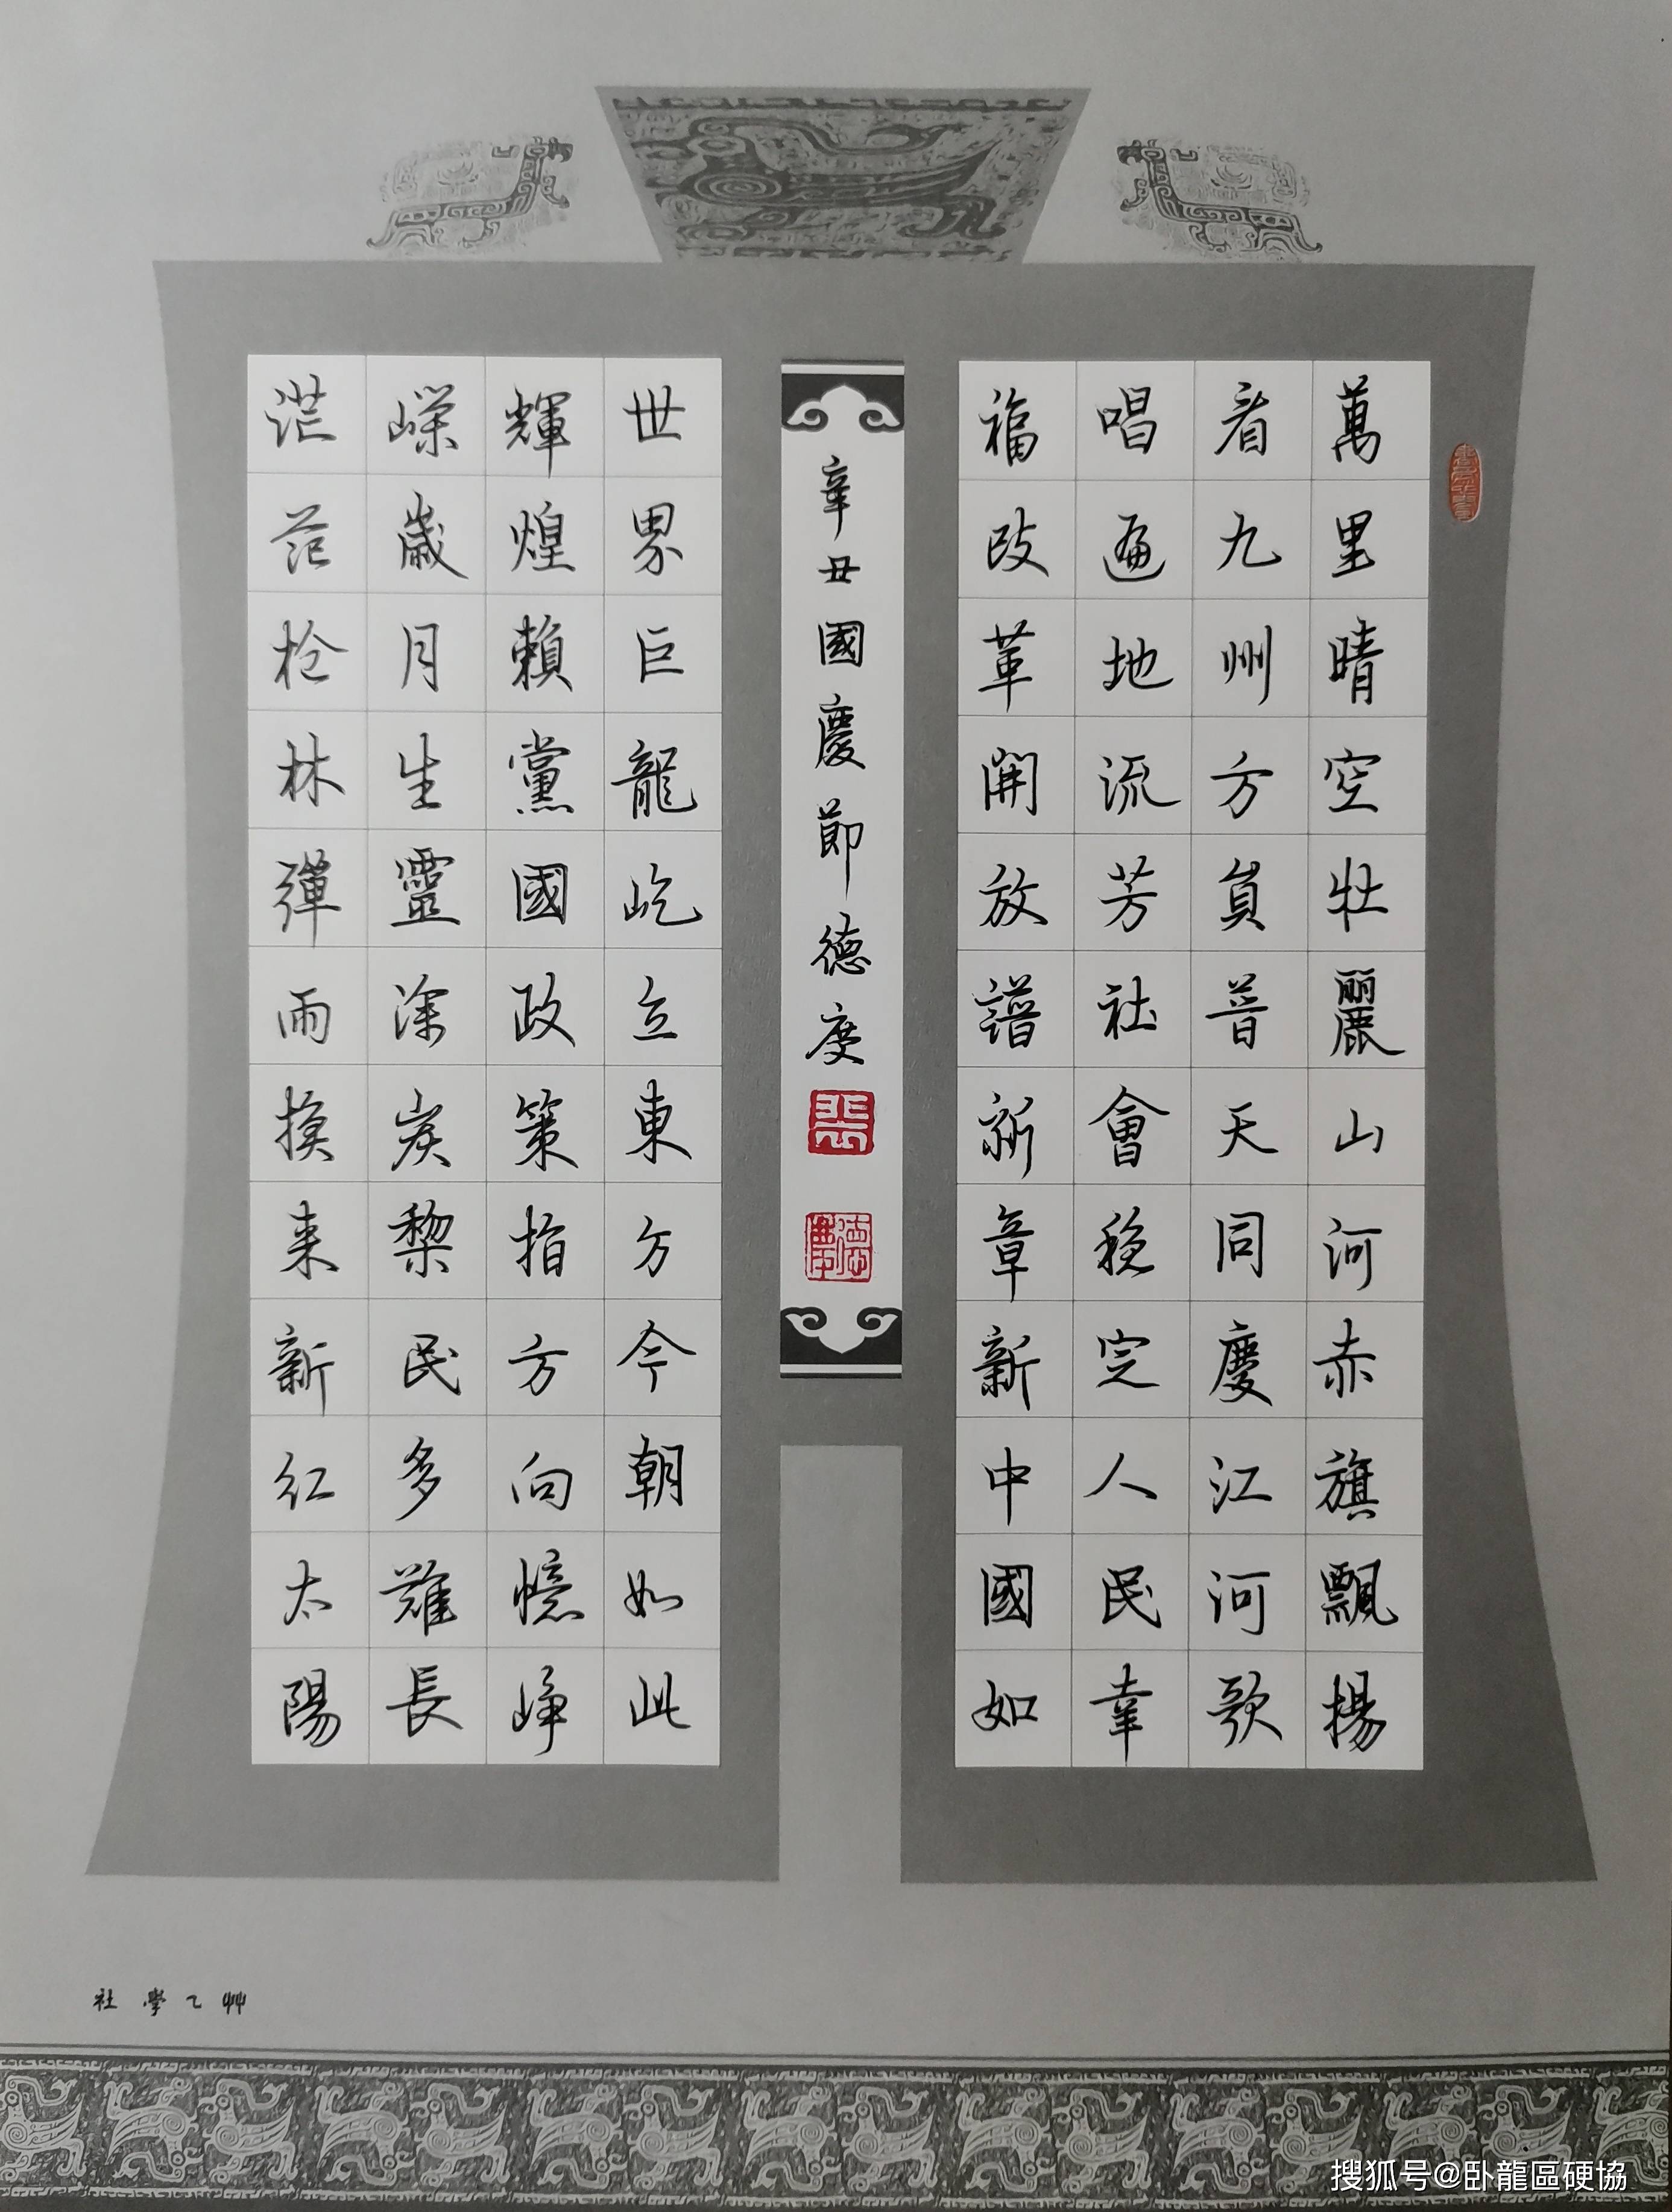 萬里晴空壯麗山河赤旗飄揚
看九州方員普天同慶江河歌
唱遍地流芳社會穩定人民幸
福改革開放譜新章新中國如
辛丑國慶節德慶
世界巨龍屹立東方今朝如此
輝煌賴黨國政策指方向憶崢
嶸歲月生靈塗炭黎民多難長
茫茫槍林彈雨換來新紅太陽
艸乙學社
搜狐号@卧龍區硬協